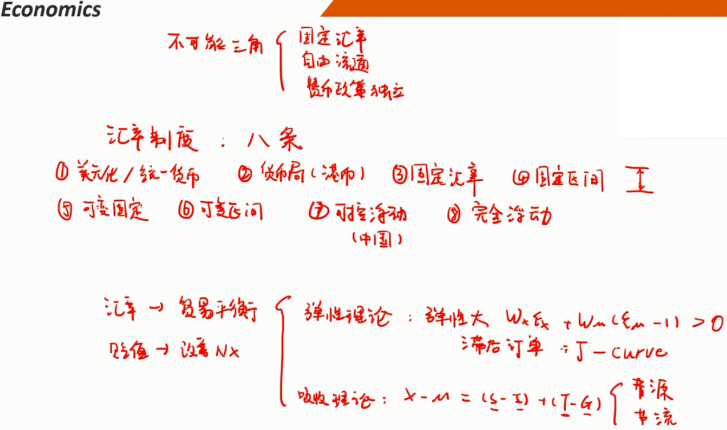 Economics
不可能三角 { 固定汇率
自由流通
货币政策独立
汇率制度：八条
① 美元化/统一货币 ② 货币局(港币) ③ 固定汇率 ④ 固定区间
⑤ 可变固定 ⑥ 可变区间 ⑦ 可控浮动 ⑧ 完全浮动
(中国)
汇率 → 贸易平衡 { 弹性理论：弹性大 WxEx + Wm(Em-1) > 0
贬值 → 改善 NX 滞后订单 ∴ J-curve
吸收理论：X-M = (S-I)+(T-G) { 开源
节流